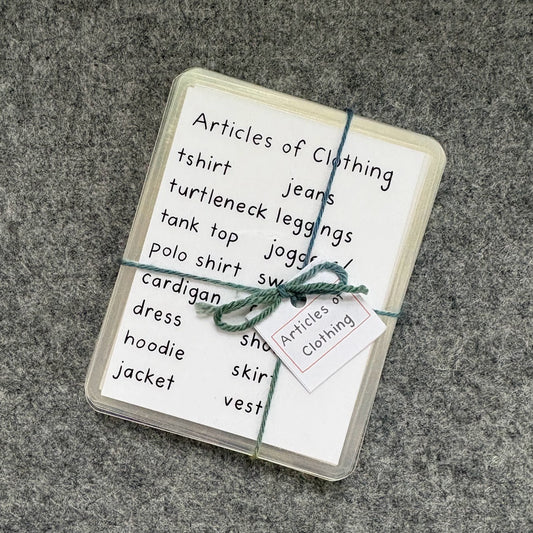 Articles of Clothing
tshirt jeans
turtleneck leggings
tank top
polo shirt
cardigan
dress
hoodie
jacket vest
Articles of
Clothing